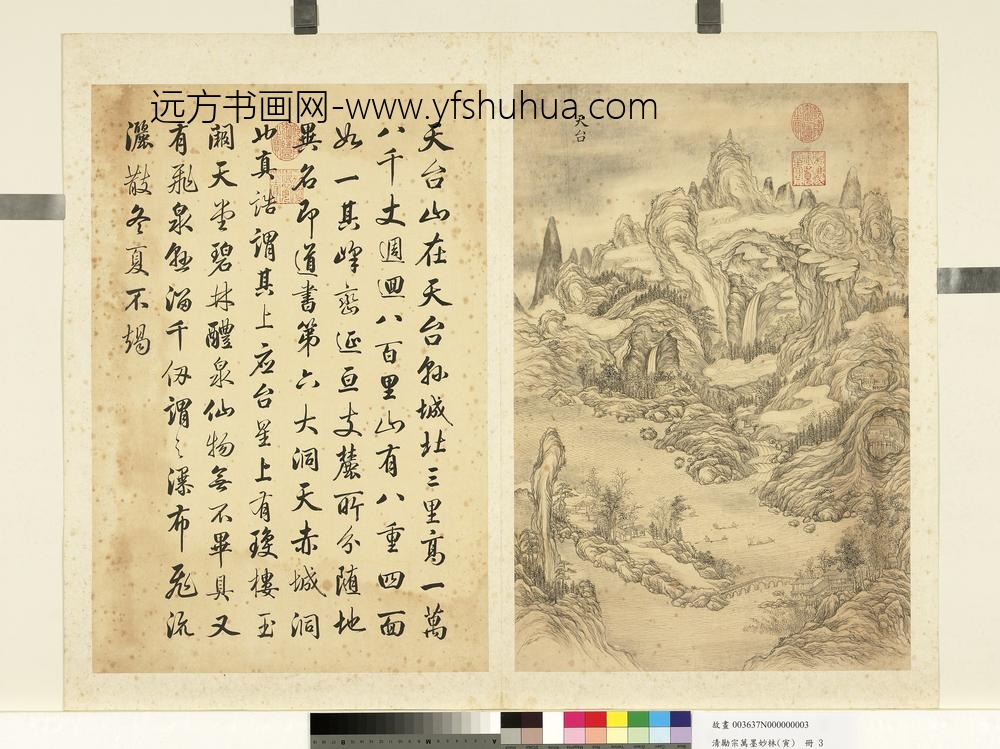 远方书画网-www.yfshuhua.com
天台
天台山在天台縣城北三里高一萬
八千丈週迴八百里山有八重四面
如一其峰巒延亘支麓所分隨地
異名即道書第六大洞天赤城洞
也真誥謂其上应台星上有瓊樓玉
闕天堂碧林醴泉仙物無不畢具又
有飛泉懸溜千仞謂之瀑布飛流
灑散冬夏不竭
故畫 003637N000000003
清勵宗萬墨妙林(寅) 冊 3